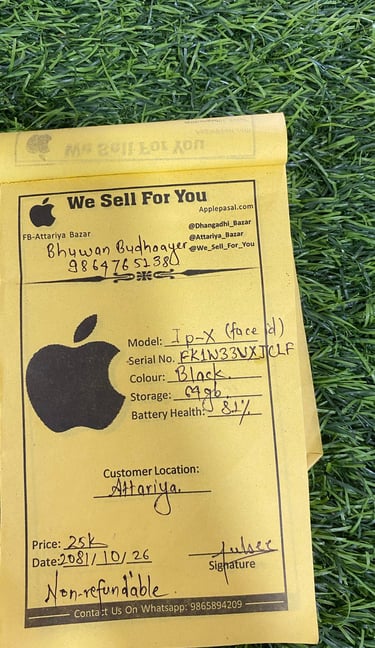 We Sell For You
We Sell For You
Applepasal.com
@Dhangadhi_Bazar
FB-Attariya Bazar
@Attariya_Bazar
Bhuwan Budhaayer
@We_Sell_For_You
9864765138
Model: Ip-X (face id)
Serial No. FK1W33VXJCLF
Colour: Black
Storage: 64gb
Battery Health: 81%
Customer Location:
Attariya.
Price: 25K
Date: 2081/10/26
Signature
Non-refundable
Contact Us On Whatsapp: 9865894209